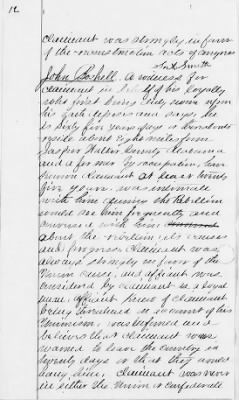 12
claimant was strongly in favor
of the reconstruction acts of congress
Smith
John Bethell. A witness for
claimant in behalf of his loyalty
who first being duly sworn upon
his oath deposes and says he
is sixty five years of age
resides about eight miles from
Jasper Walker County Alabama
and a farmer by occupation, has
known claimant at least twenty
five years. was intimate
with him during the rebellion
would see him frequently and
conversed with him
about the rebellion, its causes
and progress. Claimant was
always strongly in favor of the
Union cause, and affiant was
considered by claimant as a loyal
man. affiant heard of claimant
being threatened on account of his
Unionism, was informed and
believes that claimant was
warned to leave the country in
twenty days or that they would
hang him. Claimant was never
in either the Union or Confederate